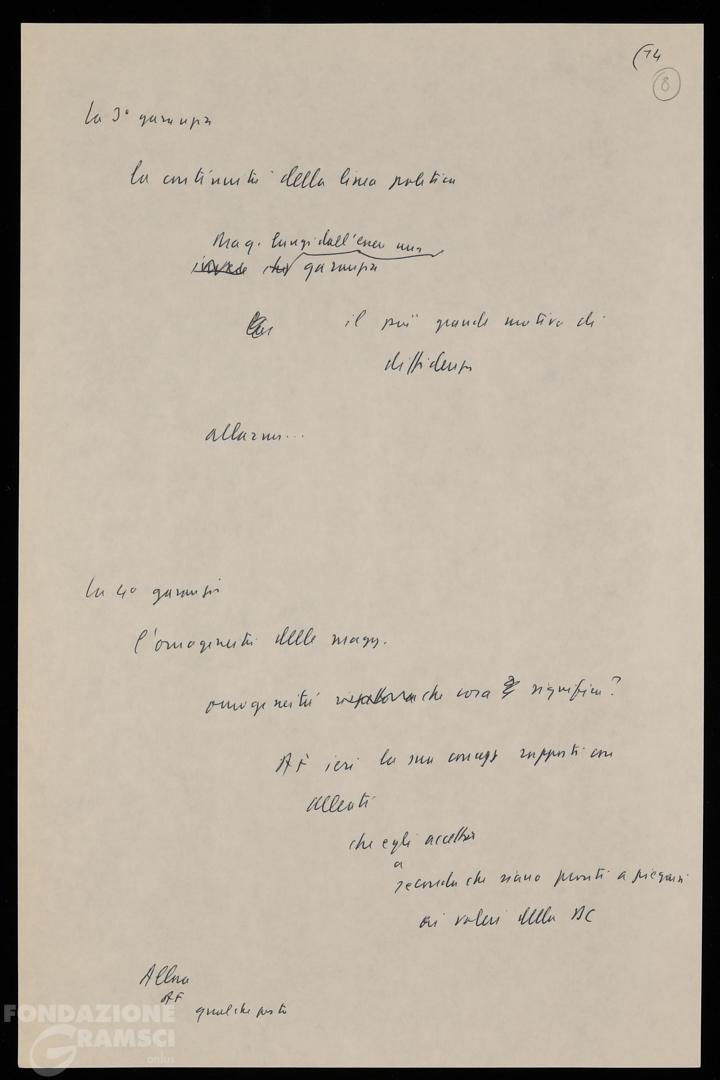 (14
8
La 3° garanzia
la continuità della linea politica
Mag. lungi dall'esser una
invece che garanzia
il più grande motivo di
diffidenza
allarme...
La 4° garanzia
l'omogeneità delle magg.
omogeneità che cosa significa?
AF ieri la sua concez rapporti con
alleati
che egli accetta
a
seconda che siano pronti a piegarsi
ai valori della DC
Allora
AF
qualche posto
FONDAZIONE
GRAMSCI
onlus